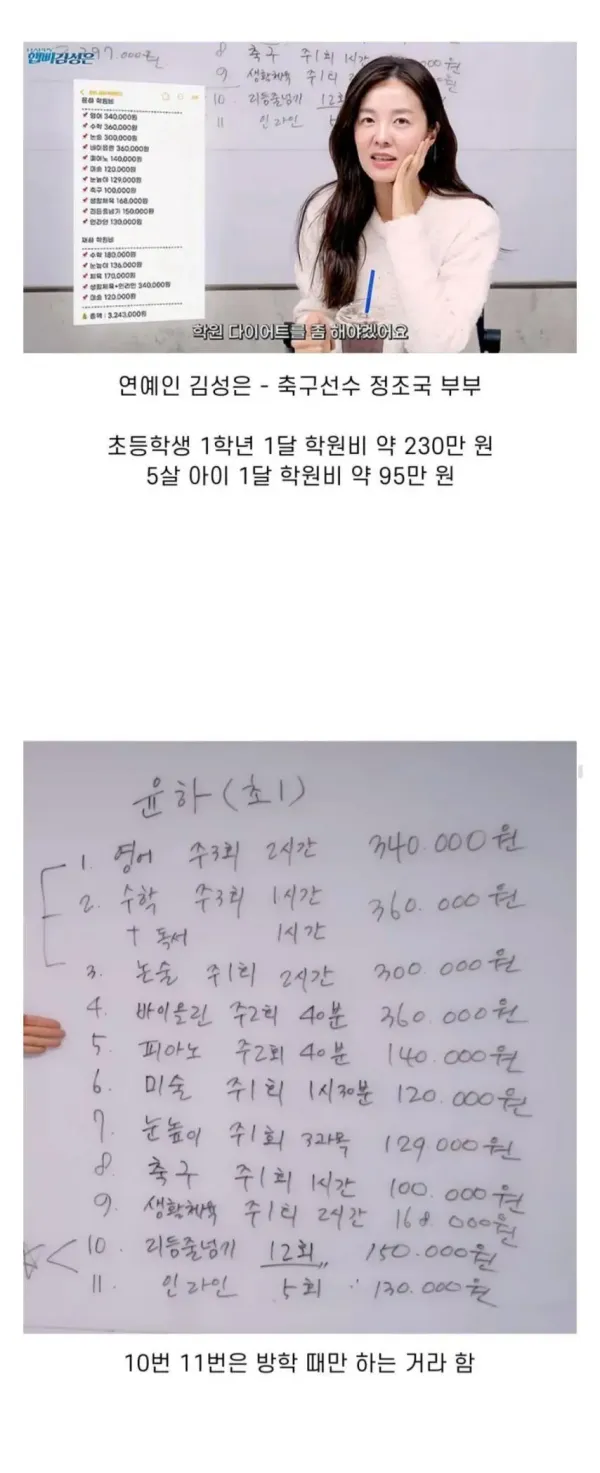 햅삐김성은
397.000원
8 축구 주1회 1시간
9 생활체육 주1회
000원
10. 리듬줄넘기 12회
11 인라인 5
윤하 학원비
영어 340,000원
수학 360,000원
논술 300,000원
바이올린 360,000원
피아노 140,000원
미술 120,000원
눈높이 129,000원
축구 100,000원
생활체육 168,000원
리듬줄넘기 150,000원
인라인 130,000원
재하 학원비
수학 180,000원
눈높이 136,000원
체육 170,000원
생활체육+인라인 340,000원
미술 120,000원
총액 : 3,243,000원
학원 다이어트를 좀 해야겠어요
연예인 김성은 - 축구선수 정조국 부부
초등학생 1학년 1달 학원비 약 230만 원
5살 아이 1달 학원비 약 95만 원
윤하 (초1)
1. 영어 주3회 2시간 340.000원
2. 수학 주3회 1시간 360.000원
+ 독서 1시간
3. 논술 주1회 2시간 300.000원
4. 바이올린 주2회 40분 360.000원
5. 피아노 주2회 40분 140.000원
6. 미술 주1회 1시30분 120.000원
7. 눈높이 주1회 3과목 129.000원
8. 축구 주1회 1시간 100.000원
9. 생활체육 주1회 2시간 168.000원
10. 리듬줄넘기 12회 150.000원
11. 인라인 5회 130.000원
10번 11번은 방학 때만 하는 거라 함